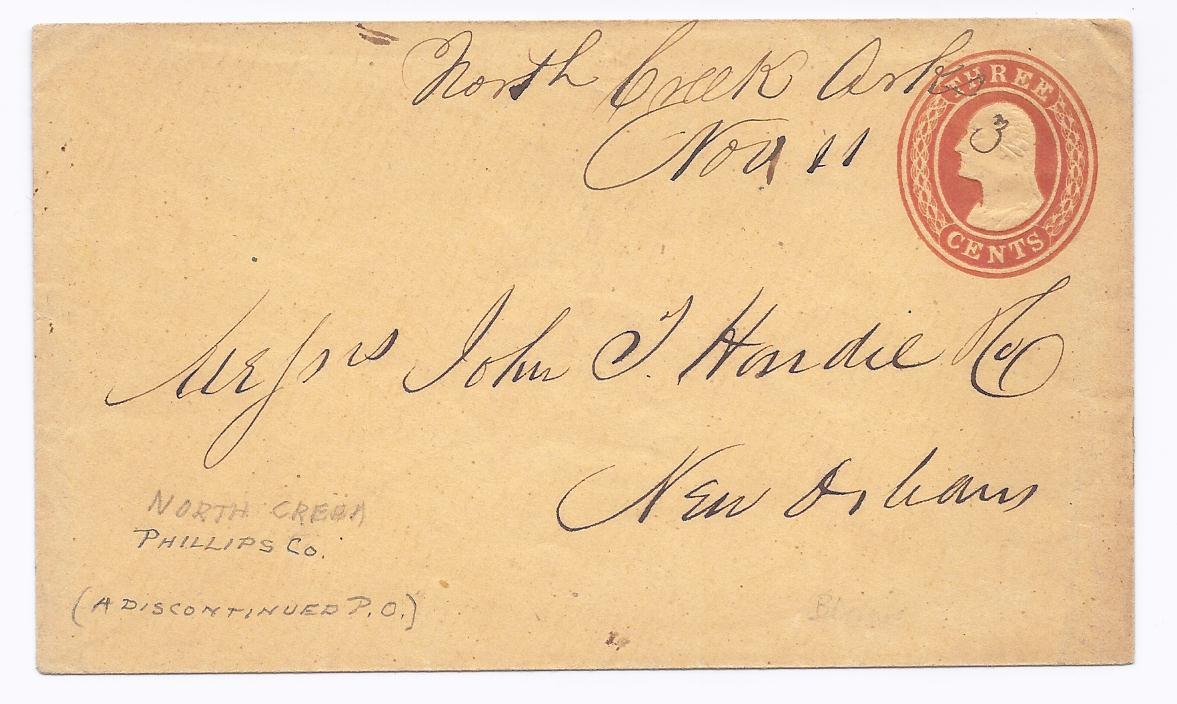 North Creek Ark
Nov 11
THREE
3
CENTS
Messrs John T. Hardie & Co
New Orleans
NORTH CREEK
PHILLIPS CO.
(A DISCONTINUED P.O.)